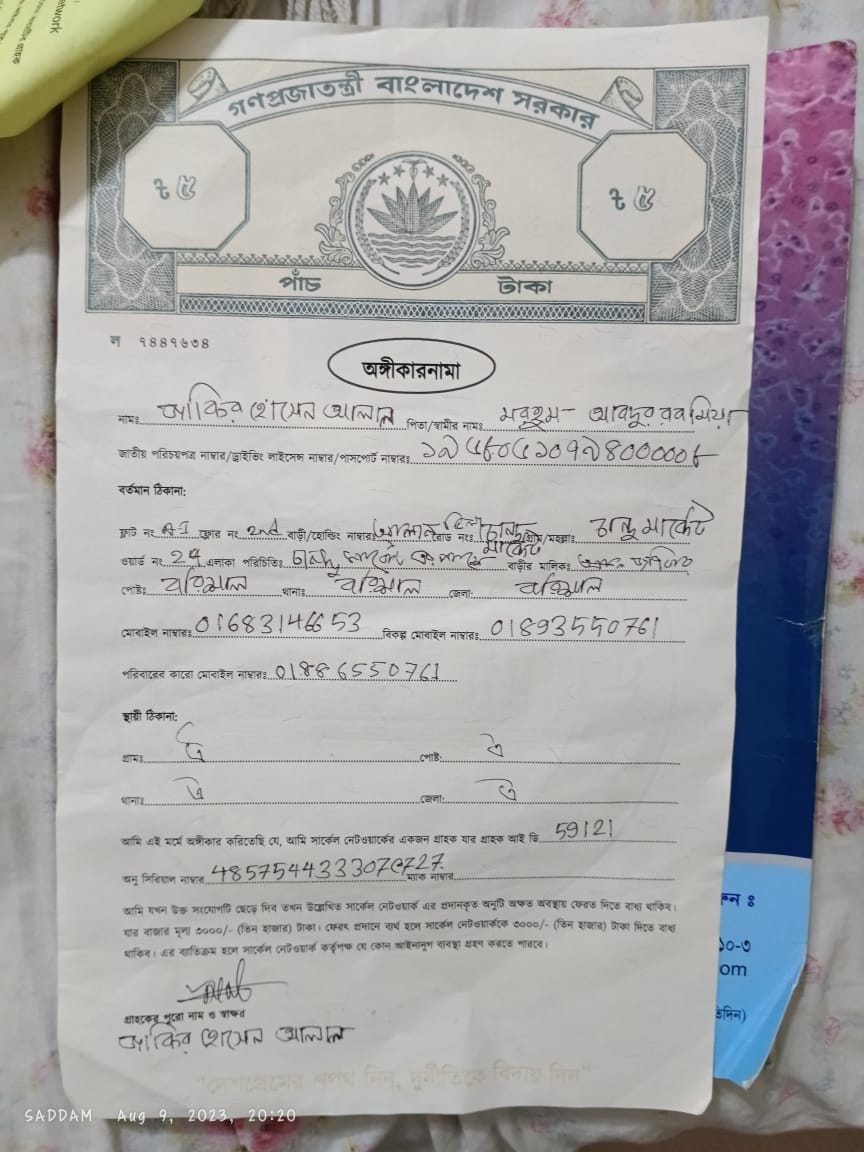 etwork
গণপ্রজাতন্ত্রী বাংলাদেশ সরকার
৳ ৫ ৳ ৫
পাঁচ টাকা
ল ৭৪৪৭৬৩৪
অঙ্গীকারনামা
নামঃ জাকির হোসেন আলাল পিতা/স্বামীর নামঃ মরহুম - আবদুর রব মিয়া
জাতীয় পরিচয়পত্র নাম্বার/ড্রাইভিং লাইসেন্স নাম্বার/পাসপোর্ট নাম্বারঃ
বর্তমান ঠিকানা:
ফ্লাট নং A1 ফ্লোর নং 2nd বাড়ী/হোল্ডিং নাম্বারঃ রোড নংঃ গ্রাম/মহল্লাঃ চান্দু মার্কেট
ওয়ার্ড নং 24 এলাকা পরিচিতিঃ চান্দু মার্কেট বাড়ীর মালিকঃ
পোষ্টঃ বরিশাল থানাঃ বরিশাল জেলা: বরিশাল
মোবাইল নাম্বারঃ 01683146653 বিকল্প মোবাইল নাম্বারঃ 01893550761
পরিবারের কারো মোবাইল নাম্বারঃ 01886550761
স্থায়ী ঠিকানা:
গ্রামঃ ঐ পোষ্ট: ঐ
থানাঃ ঐ জেলা: ঐ
আমি এই মর্মে অঙ্গীকার করিতেছি যে, আমি সার্কেল নেটওয়ার্কের একজন গ্রাহক যার গ্রাহক আই ডি 59121
অনু সিরিয়াল নাম্বার 485754433307C727 ম্যাক নাম্বার
আমি যখন উক্ত সংযোগটি ছেড়ে দিব তখন উল্লেখিত সার্কেল নেটওয়ার্ক এর প্রদানকৃত অনুটি অক্ষত অবস্থায় ফেরত দিতে বাধ্য থাকিব।
যার বাজার মূল্য ৩০০০/- (তিন হাজার) টাকা। ফেরৎ প্রদানে ব্যর্থ হলে সার্কেল নেটওয়ার্ককে ৩০০০/- (তিন হাজার) টাকা দিতে বাধ্য
থাকিব। এর ব্যতিক্রম হলে সার্কেল নেটওয়ার্ক কর্তৃপক্ষ যে কোন আইনানুগ ব্যবস্থা গ্রহণ করতে পারবে।
গ্রাহকের পুরো নাম ও স্বাক্ষর
জাকির হোসেন আলাল
"দেশপ্রেমের শপথ নিন, দুর্নীতিকে বিদায় দিন"
ন ঃ
১০-৩
om
তিদিন)
SADDAM Aug 9, 2023, 20:20